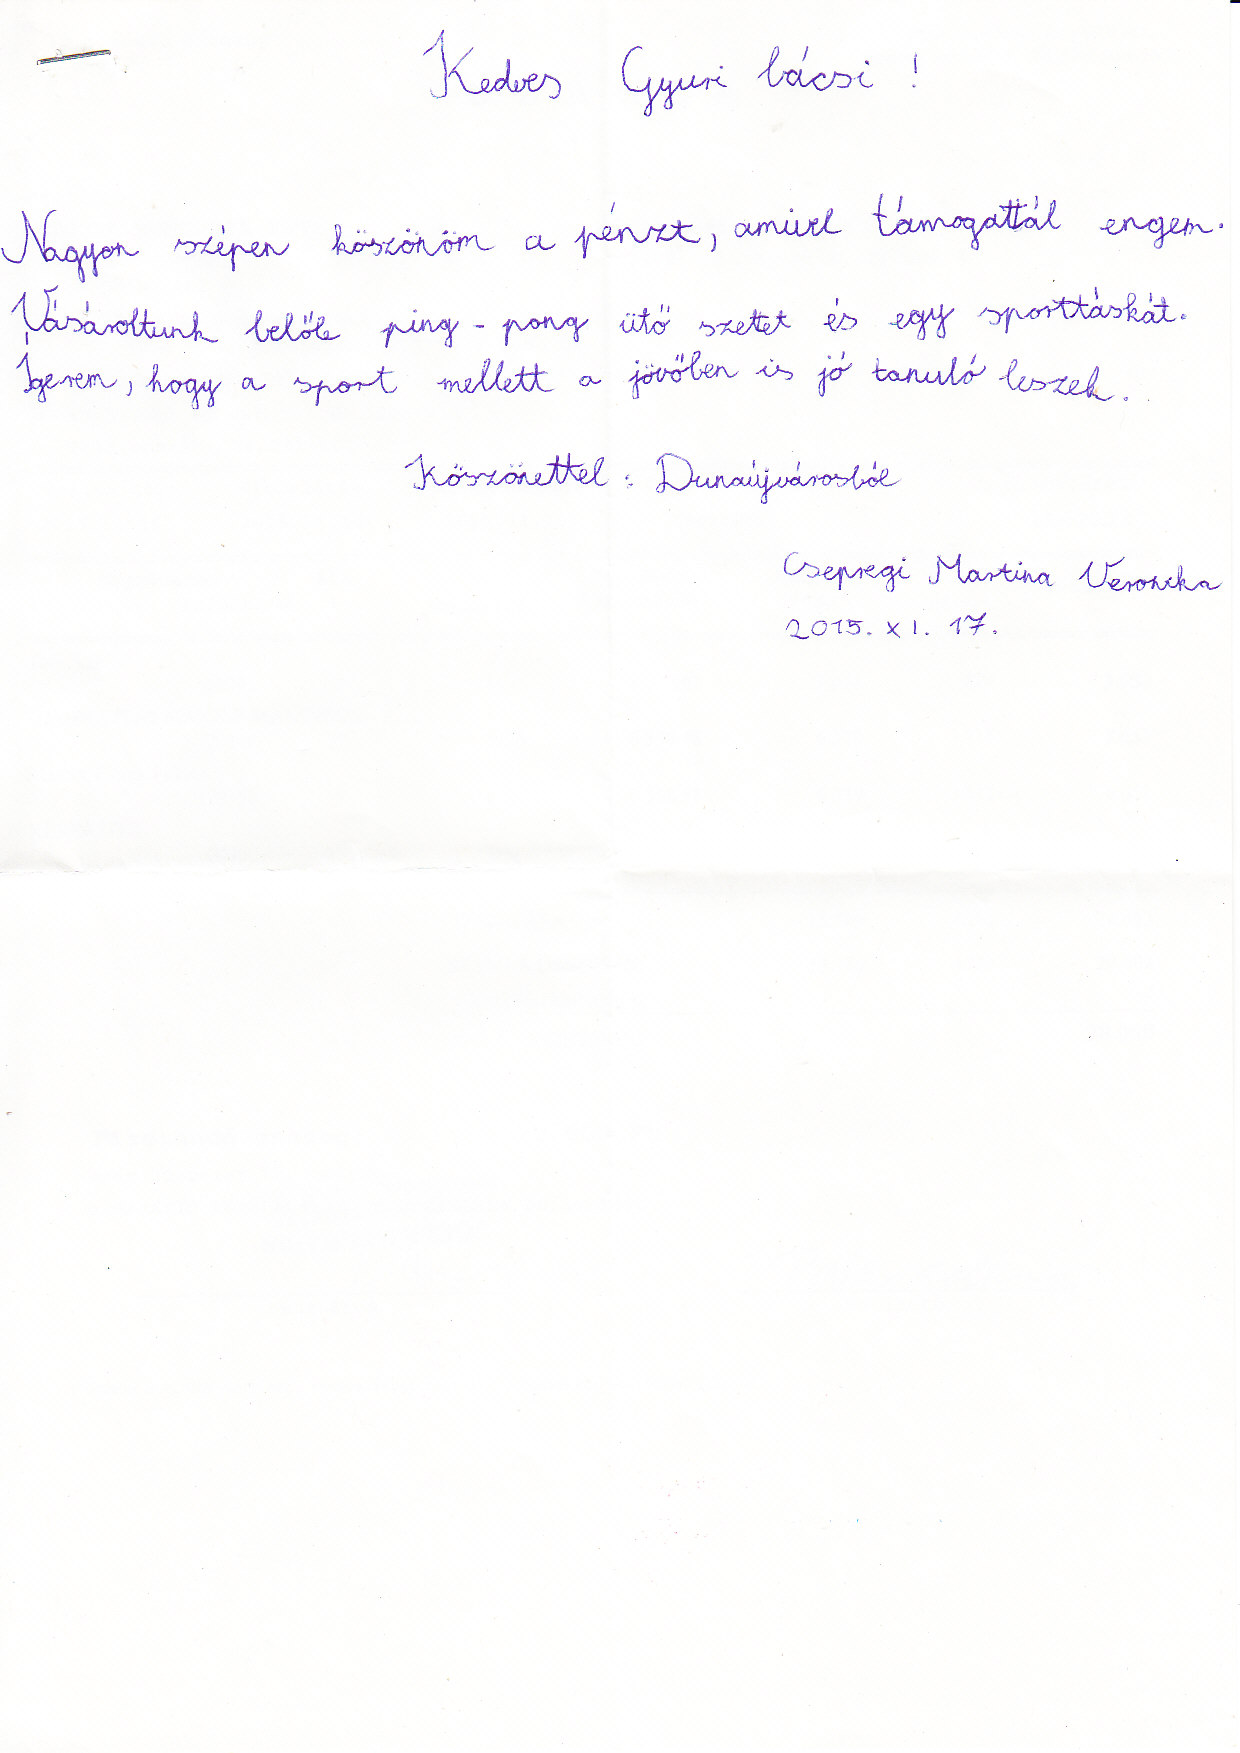 Kedves Gyuri bácsi!
Nagyon szépen köszönöm a pénzt, amivel támogattál engem.
Vásároltunk belőle ping-pong ütő szetet és egy sporttáskát.
Igerem, hogy a sport mellett a jövőben is jó tanuló leszek.
Köszönettel: Dunaújvárosból
Csepregi Martina Veronika
2015. XI. 17.